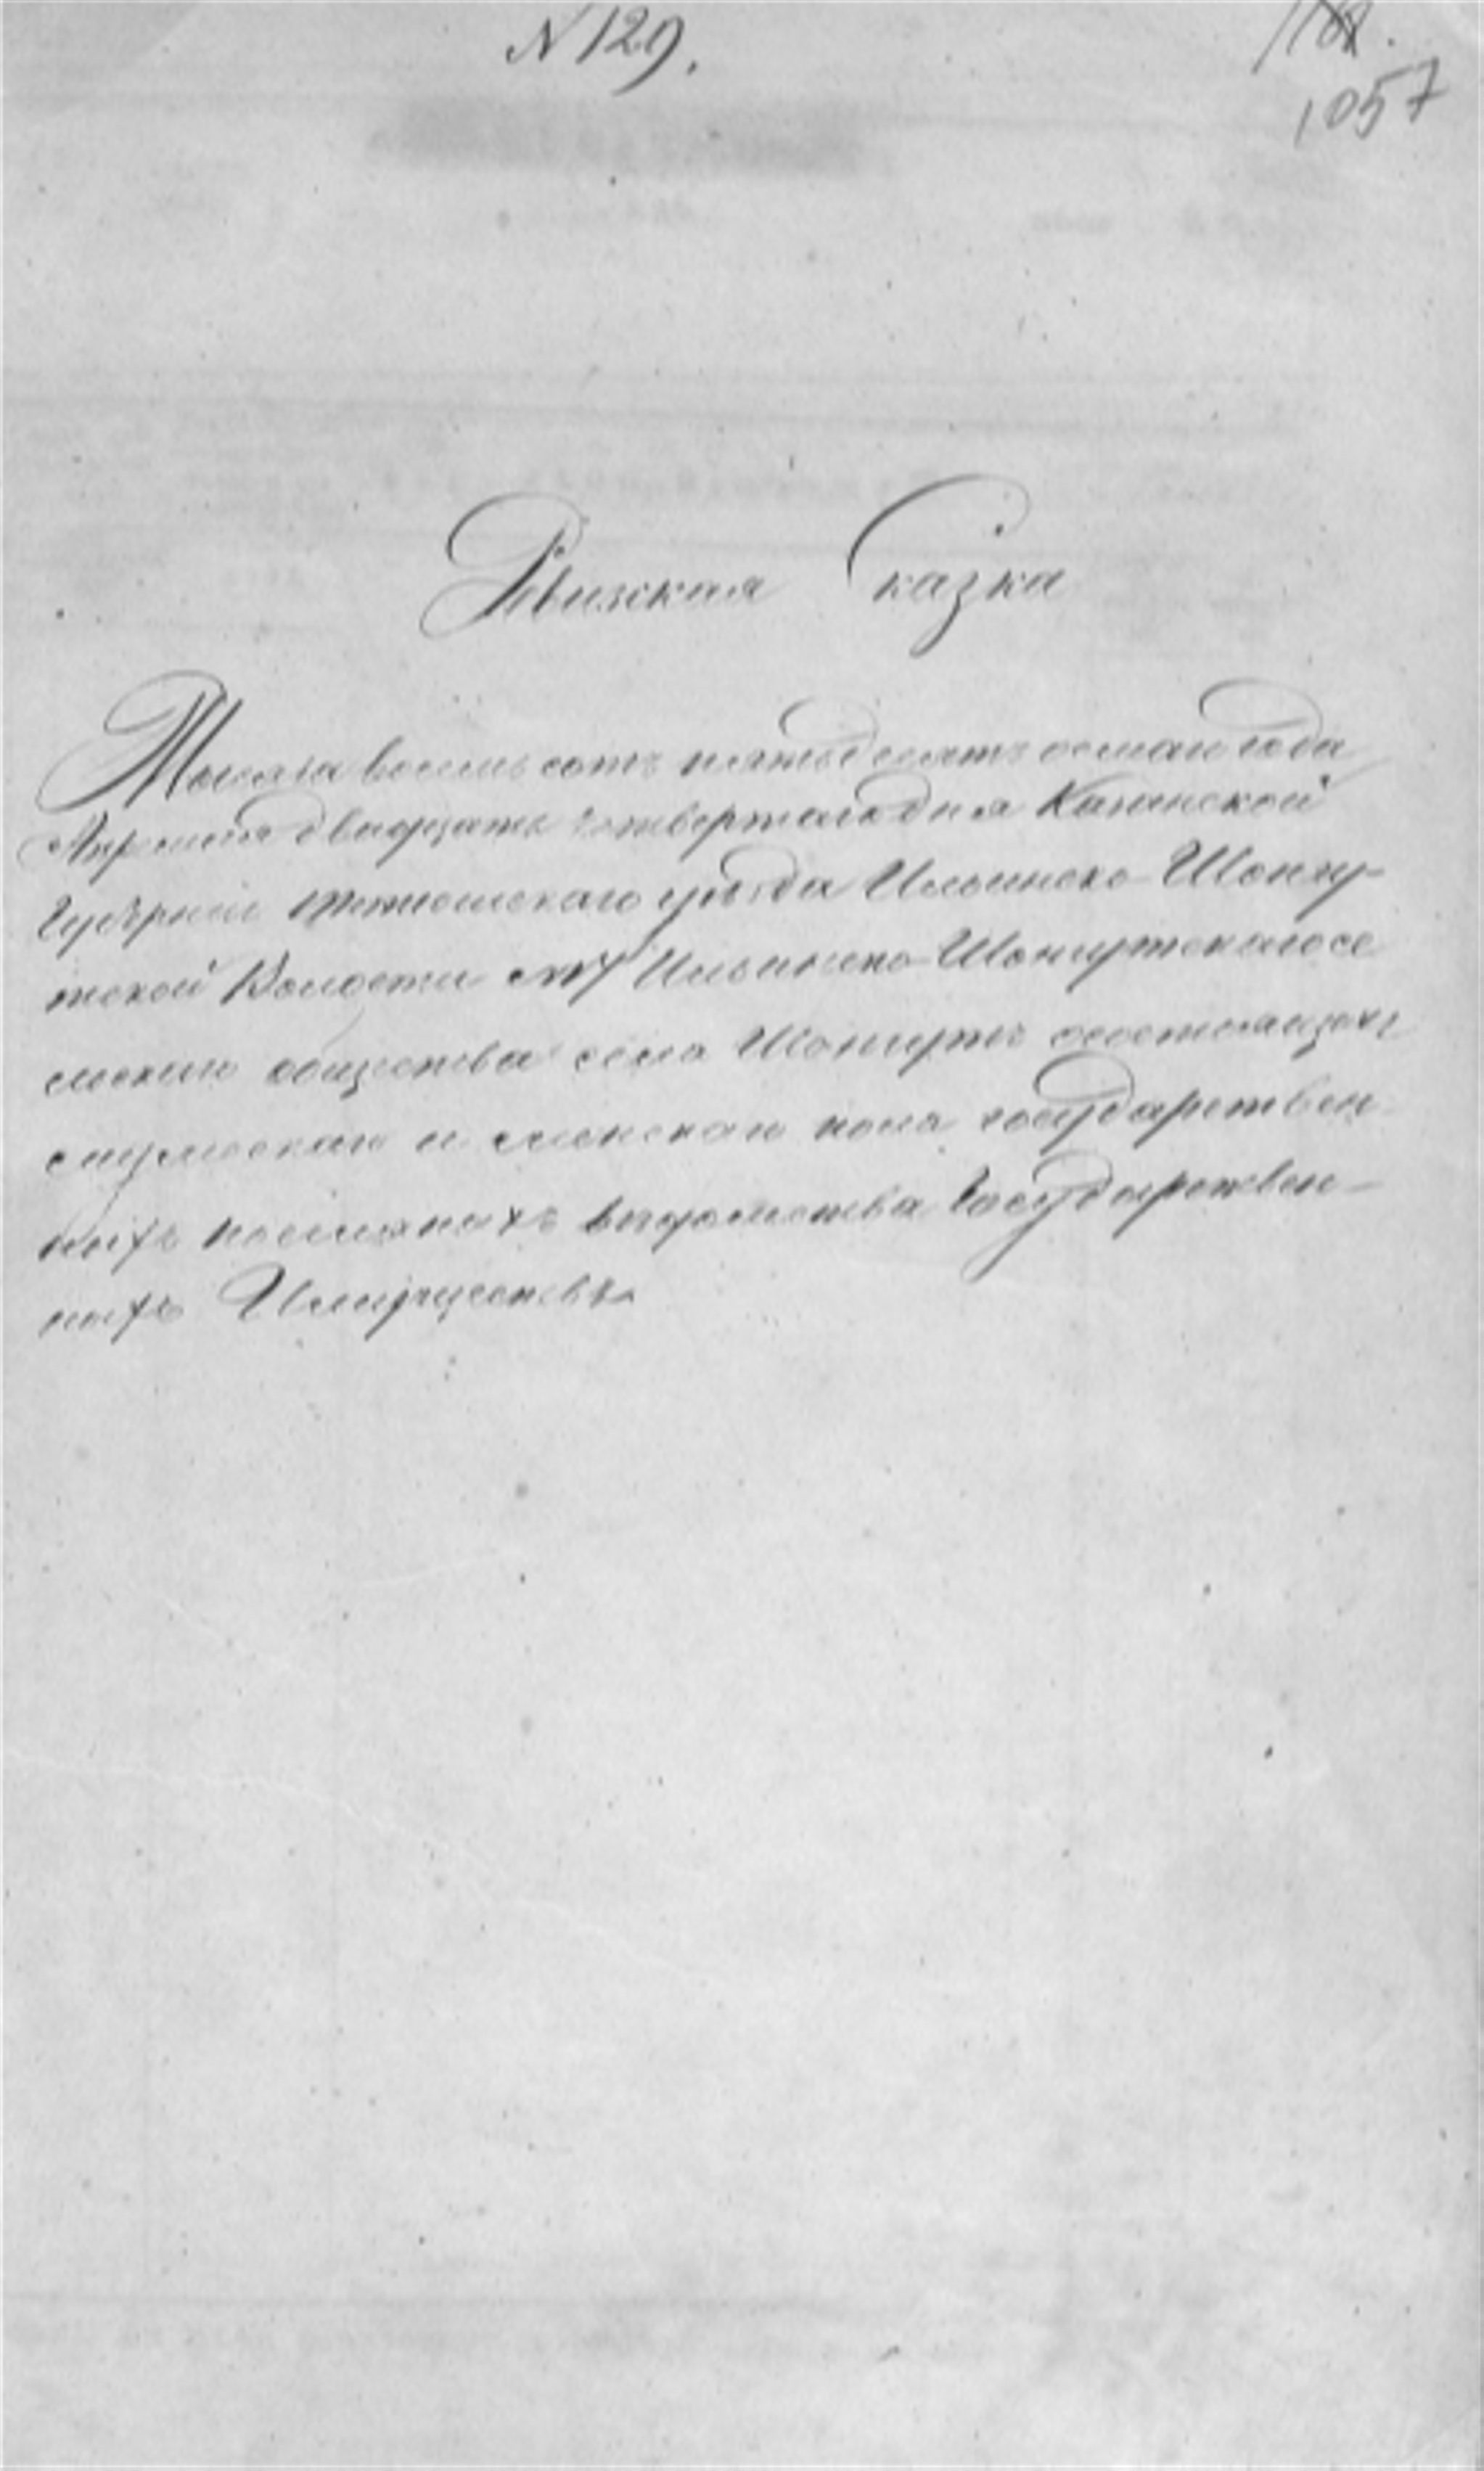 N 129.
1057
Ревизская Сказка
Тысяча восемь сотъ пятьдесятъ осмаго года
Апреля двадцать четвертаго дня Казанской
Губерніи Тетюшскаго уѣзда Ильинско-Шонгу-
тской Волости Ильинско-Шонгутскаго се
льскаго общества села Шонгутъ о состоящихъ
мужескаго и женскаго пола государствен
ныхъ поселянахъ вѣдомства Государствен-
ныхъ Имуществъ